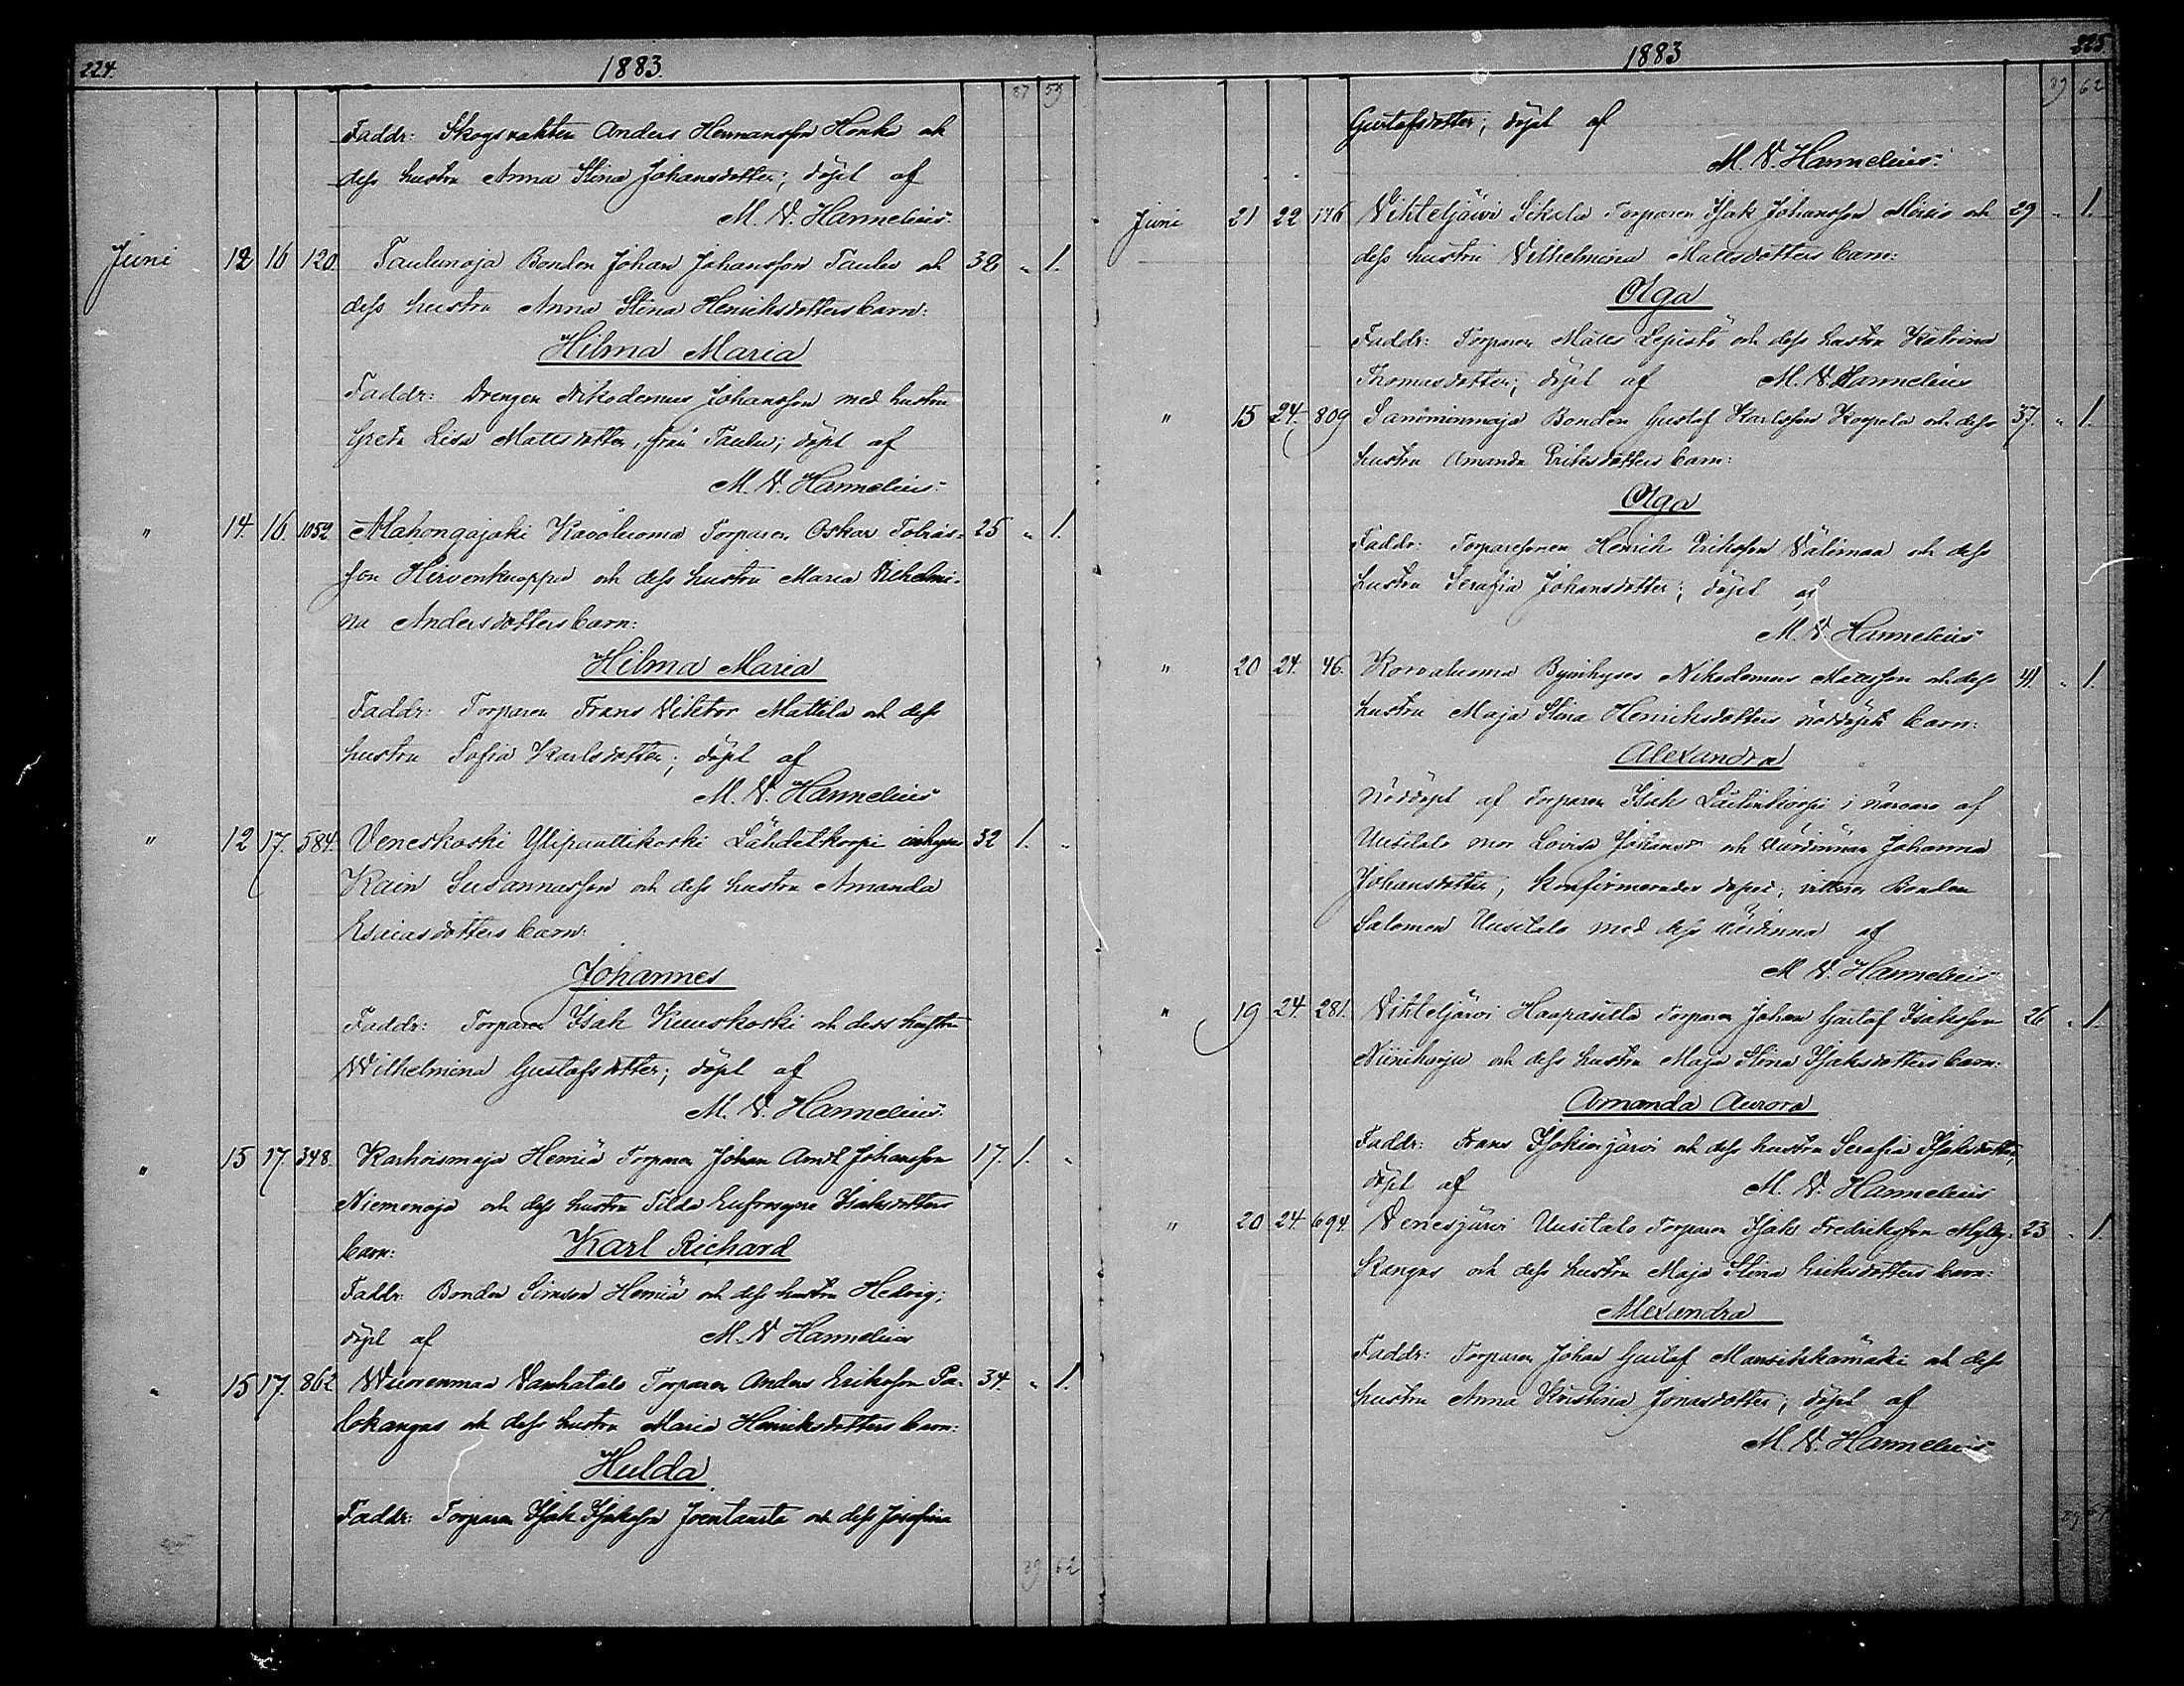 224.
1883.
37 59
Faddr: Skogsvakten Anders Hermansson Honko och
dess hustru Anna Stina Johansdotter; döpt af
M. W. Hannelius.
Juni 12 16 120. Taulunoja Bonden Johan Johansson Taulu och 32 " 1.
dess hustru Anna Stina Henriksdotters barn:
Hilma Maria
Faddr: Drengen Nikodemus Johansson med hustru
Greta Lisa Mattsdotter, från Taulu; döpt af
M. W. Hannelius.
" 14. 16. 1052 Alahongajoki Torparen Oskar Tobias- 25 " 1.
son och dess hustru Maria Vilhelmi-
na Andersdotters barn:
Hilma Maria
Faddr: Torparen Frans Viktor Mattila och dess
hustru Sofia Karlsdotter; döpt af
M. W. Hannelius
" 12 17. 584. Veneskoski Ylipuattikoski Lähdetkorpi inhyses 32 1. "
Kain Susannasson och dess hustru Amanda
Esaiasdotters barn:
Johannes
Faddr: Torparen Isak Kuuskoski och dess hustru
Wilhelmina Gustafsdotter; döpt af
M. W. Hannelius.
" 15 17. 348. Karhoismaja Hemiä Torparen Johan Johansson 17. 1. "
Niemenoja och dess hustru Tilda Eufrosyne Isaksdotters
barn: Karl Richard
Faddr: Bonden Simson Hemiä och dess hustru Hedvig;
döpt af M. W. Hannelius
" 15 17. 862 Wuorenmaa Vanhatalo Torparen Anders Eriksson Pa- 34. " 1.
lokangas och dess hustru Maria Henriksdotters barn:
Hulda
Faddr: Torparen Isak Isaksson Joentausta och dess Josefina
39 62
1883
225
39 62
Gustafsdotter; döpt af
M. W. Hannelius.
Juni 21 22 176 Vihteljärvi Sikala Torparen Isak Johansson och 29 " 1.
dess hustru Vilhelmina Mattsdotters barn:
Olga
Faddr: Torparen Matts Lepistö och dess hustru Katrina
Thomasdotter; döpt af M. W. Hannelius
" 15 24. 809 Bonden Gustaf Karlsson Korpela och dess 37. " 1.
hustru Amanda Eriksdotters barn:
Olga
Faddr: Torparesonen Henrik Eriksson Välimaa och dess
hustru Serafia Johansdotter; döpt af
M. W. Hannelius
" 20 24. 46. Korvaluoma Byinhyses Nikodemus Mattsson och dess 41. " 1.
hustru Maja Stina Henriksdotters nöddöpta barn:
Alexandra
Nöddöpt af Torparen Isak i närvaro af
Uusitalo mor Lovisa Johansdr och värdinnan Johanna
Johansdotter; konfirmerades dopet; vittnen Bonden
Salomon Uusitalo med dess värdinna af
M. W. Hannelius
" 19 24. 281. Vihteljärvi Haapasilta Torparen Johan Gustaf Isaksson 26 " 1.
Niiniharju och dess hustru Maja Stina Isaksdotters barn:
Amanda Aurora
Faddr: Frans Isokivijärvi och dess hustru Serafia Isaksdotter;
döpt af M. W. Hannelius
" 20 24. 694. Venesjärvi Uusitalo Torparen Isak Fredriksson Mylly- 23 " 1.
kangas och dess hustru Maja Stina Eriksdotters barn:
Alexandra
Faddr: Torparen Johan Gustaf Mansikkamäki och dess
hustru Anna Kristina Jonasdotter; döpt af
M. W. Hannelius
39 67